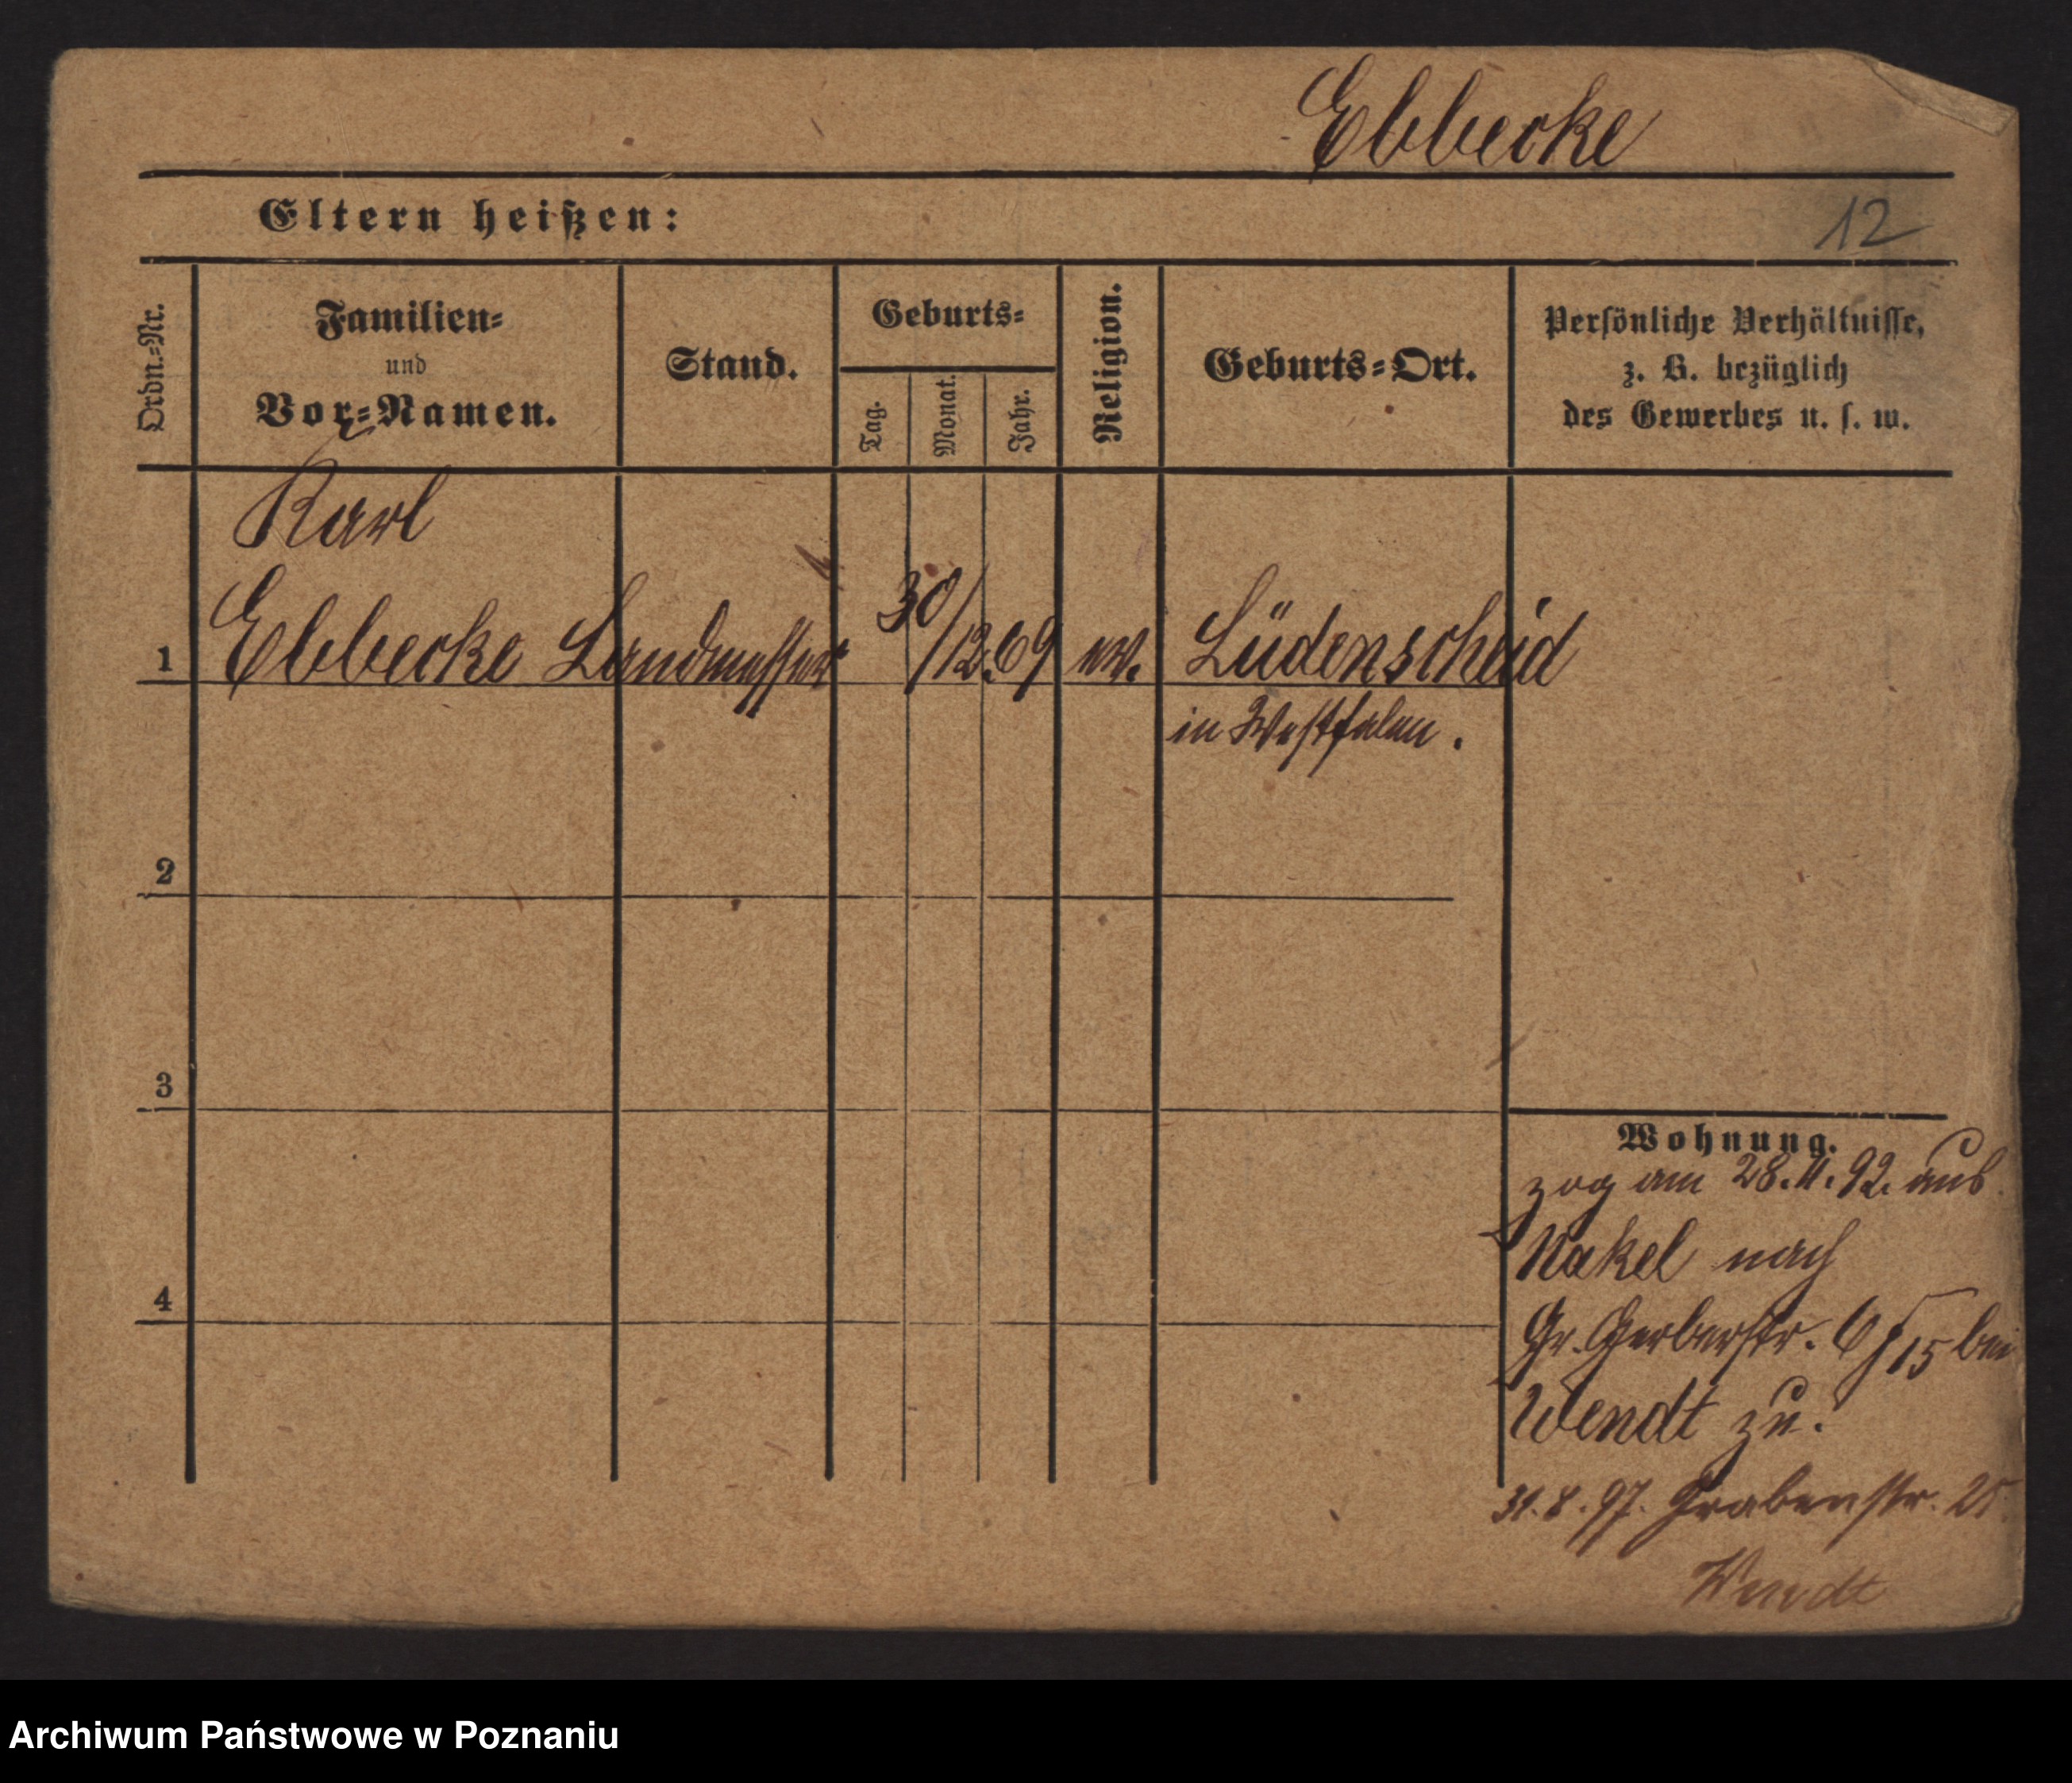 Ebbecke
Eltern heißen:
12
Ordn.-Nr.
Familien-
und
Vor-Namen.
Stand.
Geburts-
Tag.
Monat.
Jahr.
Religion.
Geburts-Ort.
Persönliche Verhältnisse,
z. B. bezüglich
des Gewerbes u. s. w.
Karl
1 Ebbecke Landmesser 30/12.69 ev. Lüdenscheid
in Westfalen.
2
3
4
Wohnung.
zog am 28.4.92. aus
Nakel nach
Gr. Gerberstr. 6 15 bei
Wendt zu.
31.8.97. Grabenstr. 25.
Wendt
Archiwum Państwowe w Poznaniu